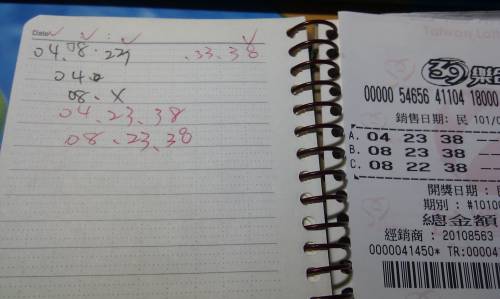 Date
04.08.23 .33.38
04.
08.X
04.23.38
08.23.38
Taiwan Lott
39 樂
00000 54656 41104 18000
銷售日期: 民 101/0
A. 04 23 38 --
B. 08 23 38 --
C. 08 22 38 --
開獎日期:
期別: #10100
總金額
經銷商: 20108563
0000041450* TR:00004